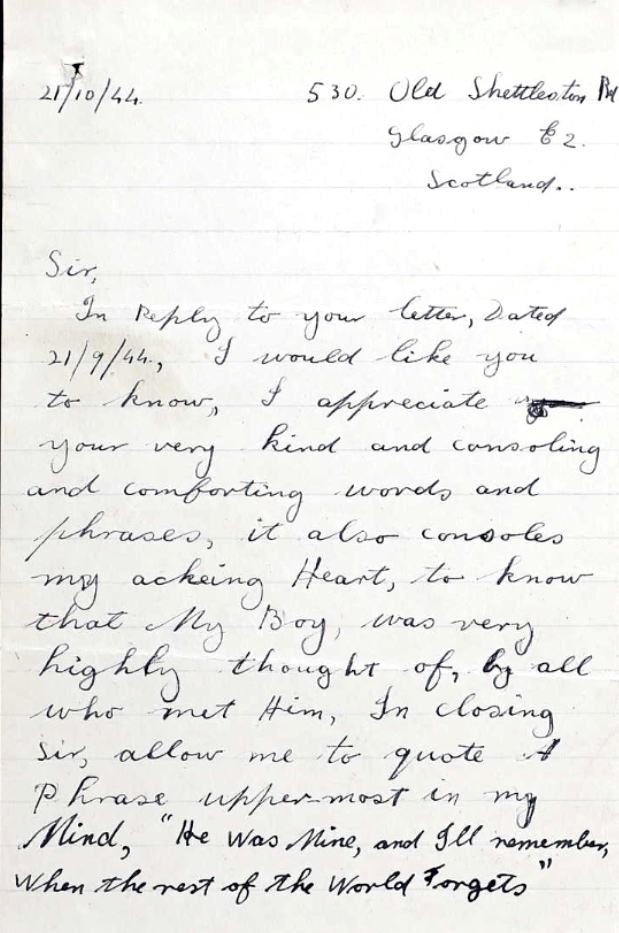 21/10/44. 530. Old Shettleston Rd
Glasgow E2.
Scotland..
Sir,
In Reply to your letter, Dated
21/9/44., I would like you
to know, I appreciate
your very kind and consoling
and comforting words and
phrases, it also consoles
my ackeing Heart, to know
that My Boy, was very
highly thought of, by all
who met Him, In closing
Sir, allow me to quote A
Phrase upper-most in my
Mind, "He Was Mine, and I'll remember,
When the rest of the World Forgets"